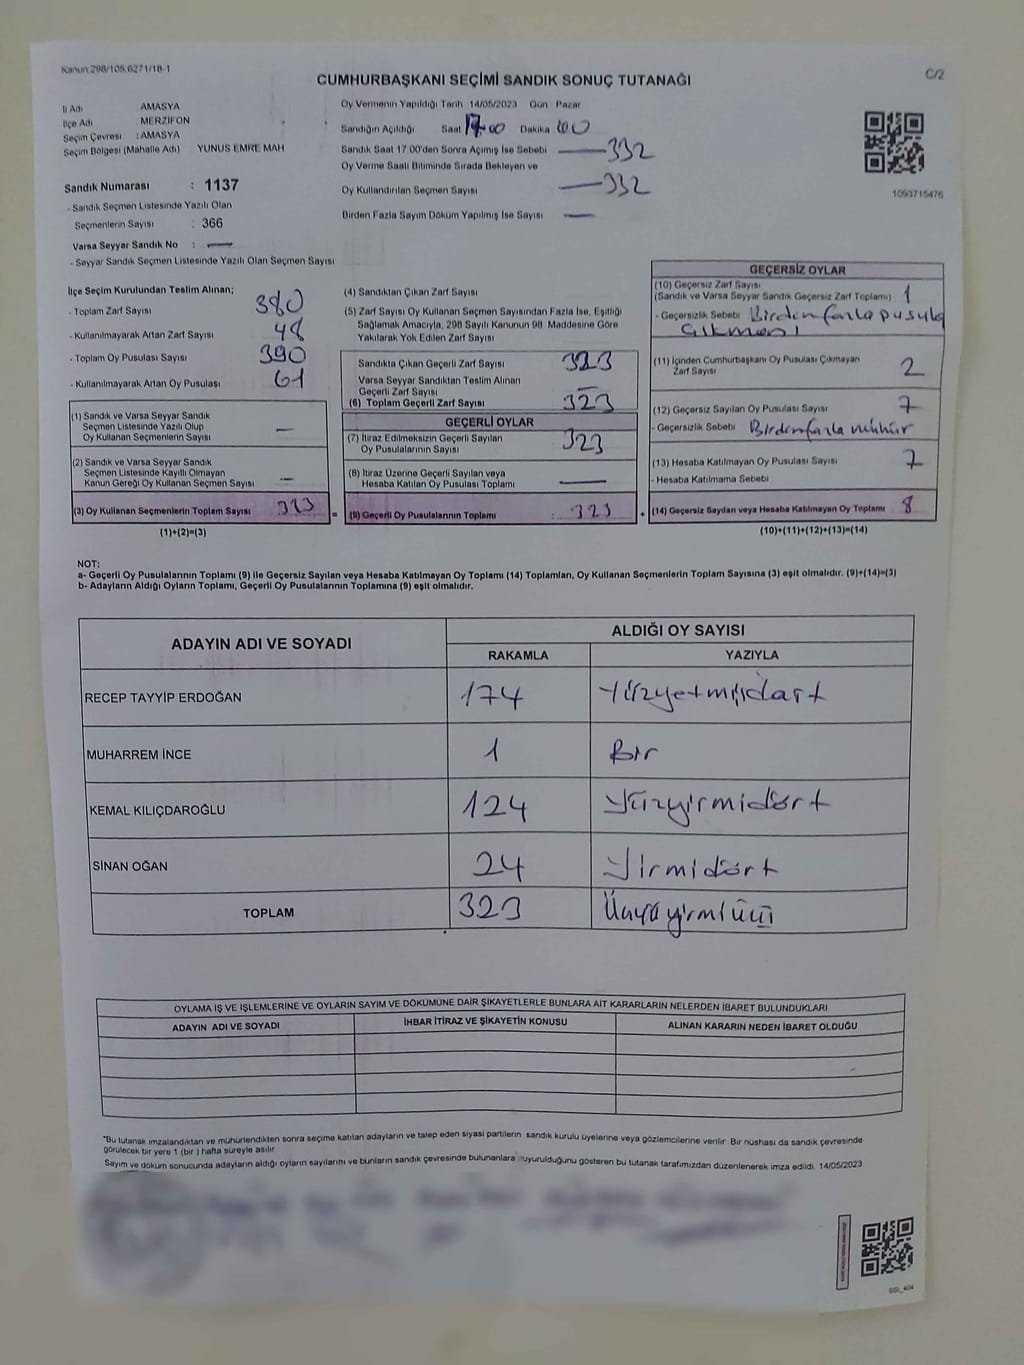 Kanun:298/105,6271/18-1
C/2
CUMHURBAŞKANI SEÇİMİ SANDIK SONUÇ TUTANAĞI
İl Adı AMASYA
İlçe Adı MERZİFON
Seçim Çevresi : AMASYA
Seçim Bölgesi (Mahalle Adı) YUNUS EMRE MAH
Sandık Numarası : 1137
- Sandık Seçmen Listesinde Yazılı Olan
Seçmenlerin Sayısı : 366
Varsa Seyyar Sandık No : —
- Seyyar Sandık Seçmen Listesinde Yazılı Olan Seçmen Sayısı
Oy Vermenin Yapıldığı Tarih 14/05/2023 Gün Pazar
Sandığın Açıldığı Saat 17:00 Dakika 00
Sandık Saat 17.00'den Sonra Açımış İse Sebebi — 332
Oy Verme Saati Bitiminde Sırada Bekleyen ve
Oy Kullandırılan Seçmen Sayısı — 332
Birden Fazla Sayım Döküm Yapılmış İse Sayısı —
1093715476
İlçe Seçim Kurulundan Teslim Alınan;
- Toplam Zarf Sayısı 380
- Kullanılmayarak Artan Zarf Sayısı 48
- Toplam Oy Pusulası Sayısı 390
- Kullanılmayarak Artan Oy Pusulası 61
(1) Sandık ve Varsa Seyyar Sandık
Seçmen Listesinde Yazılı Olup
Oy Kullanan Seçmenlerin Sayısı —
(2) Sandık ve Varsa Seyyar Sandık
Seçmen Listesinde Kayıtlı Olmayan
Kanun Gereği Oy Kullanan Seçmen Sayısı —
(3) Oy Kullanan Seçmenlerin Toplam Sayısı 323 =
(1)+(2)=(3)
(4) Sandıktan Çıkan Zarf Sayısı
(5) Zarf Sayısı Oy Kullanan Seçmen Sayısından Fazla İse, Eşitliği
Sağlamak Amacıyla, 298 Sayılı Kanunun 98. Maddesine Göre
Yakılarak Yok Edilen Zarf Sayısı
Sandıkta Çıkan Geçerli Zarf Sayısı 323
Varsa Seyyar Sandıktan Teslim Alınan
Geçerli Zarf Sayısı —
(6) Toplam Geçerli Zarf Sayısı 323
GEÇERLİ OYLAR
(7) İtiraz Edilmeksizin Geçerli Sayılan
Oy Pusulalarının Sayısı 323
(8) İtiraz Üzerine Geçerli Sayılan veya
Hesaba Katılan Oy Pusulası Toplamı —
(9) Geçerli Oy Pusulalarının Toplamı : 323 +
GEÇERSİZ OYLAR
(10) Geçersiz Zarf Sayısı
(Sandık ve Varsa Seyyar Sandık Geçersiz Zarf Toplamı) 1
- Geçersizlik Sebebi Birden fazla pusula
çıkması
(11) İçinden Cumhurbaşkanı Oy Pusulası Çıkmayan
Zarf Sayısı 2
(12) Geçersiz Sayılan Oy Pusulası Sayısı 7
- Geçersizlik Sebebi Birden fazla mühür
(13) Hesaba Katılmayan Oy Pusulası Sayısı 7
- Hesaba Katılmama Sebebi
(14) Geçersiz Sayılan veya Hesaba Katılmayan Oy Toplamı 8
(10)+(11)+(12)+(13)=(14)
NOT:
a- Geçerli Oy Pusulalarının Toplamı (9) ile Geçersiz Sayılan veya Hesaba Katılmayan Oy Toplamı (14) Toplamları, Oy Kullanan Seçmenlerin Toplam Sayısına (3) eşit olmalıdır. (9)+(14)=(3)
b- Adayların Aldığı Oyların Toplamı, Geçerli Oy Pusulalarının Toplamına (9) eşit olmalıdır.
ADAYIN ADI VE SOYADI
ALDIĞI OY SAYISI
RAKAMLA YAZIYLA
RECEP TAYYİP ERDOĞAN 174 Yüzyetmişdört
MUHARREM İNCE 1 Bir
KEMAL KILIÇDAROĞLU 124 Yüzyirmidört
SİNAN OĞAN 24 Yirmidört
TOPLAM 323 Üçyüzyirmiüç
OYLAMA İŞ VE İŞLEMLERİNE VE OYLARIN SAYIM VE DÖKÜMÜNE DAİR ŞİKAYETLERLE BUNLARA AİT KARARLARIN NELERDEN İBARET BULUNDUKLARI
ADAYIN ADI VE SOYADI İHBAR İTİRAZ VE ŞİKAYETİN KONUSU ALINAN KARARIN NEDEN İBARET OLDUĞU
*Bu tutanak imzalandıktan ve mühürlendikten sonra seçime katılan adayların ve talep eden siyasi partilerin sandık kurulu üyelerine veya gözlemcilerine verilir. Bir nüshası da sandık çevresinde
görülecek bir yere 1 (bir) hafta süreyle asılır.
Sayım ve döküm sonucunda adayların aldığı oyların sayılarını ve bunların sandık çevresinde bulunanlara duyurulduğunu gösteren bu tutanak tarafımızdan düzenlenerek imza edildi. 14/05/2023